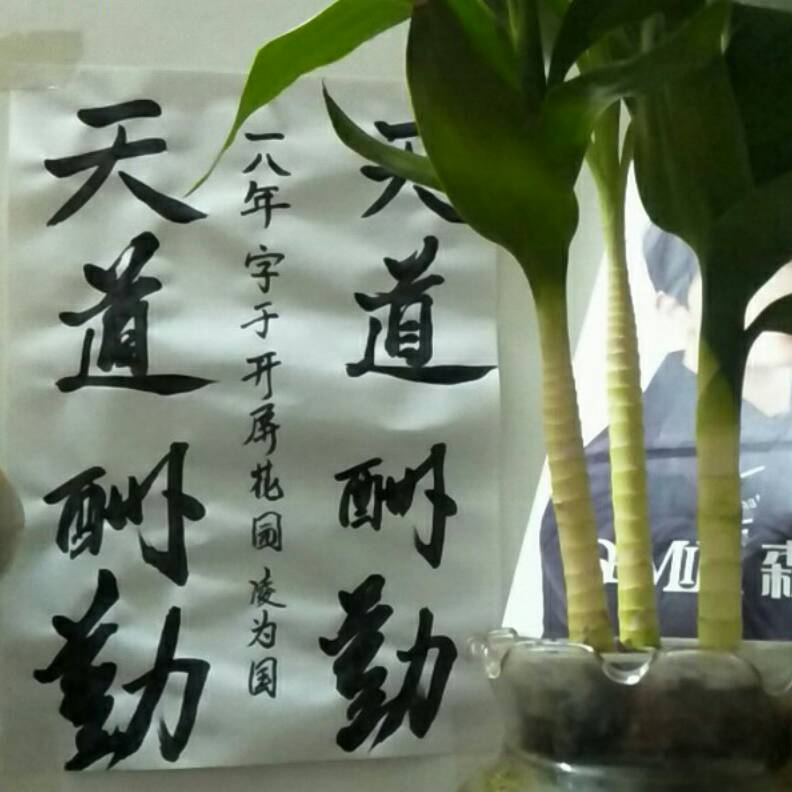 天道酬勤
一八年字于开屏花园凌为国
天道酬勤
森